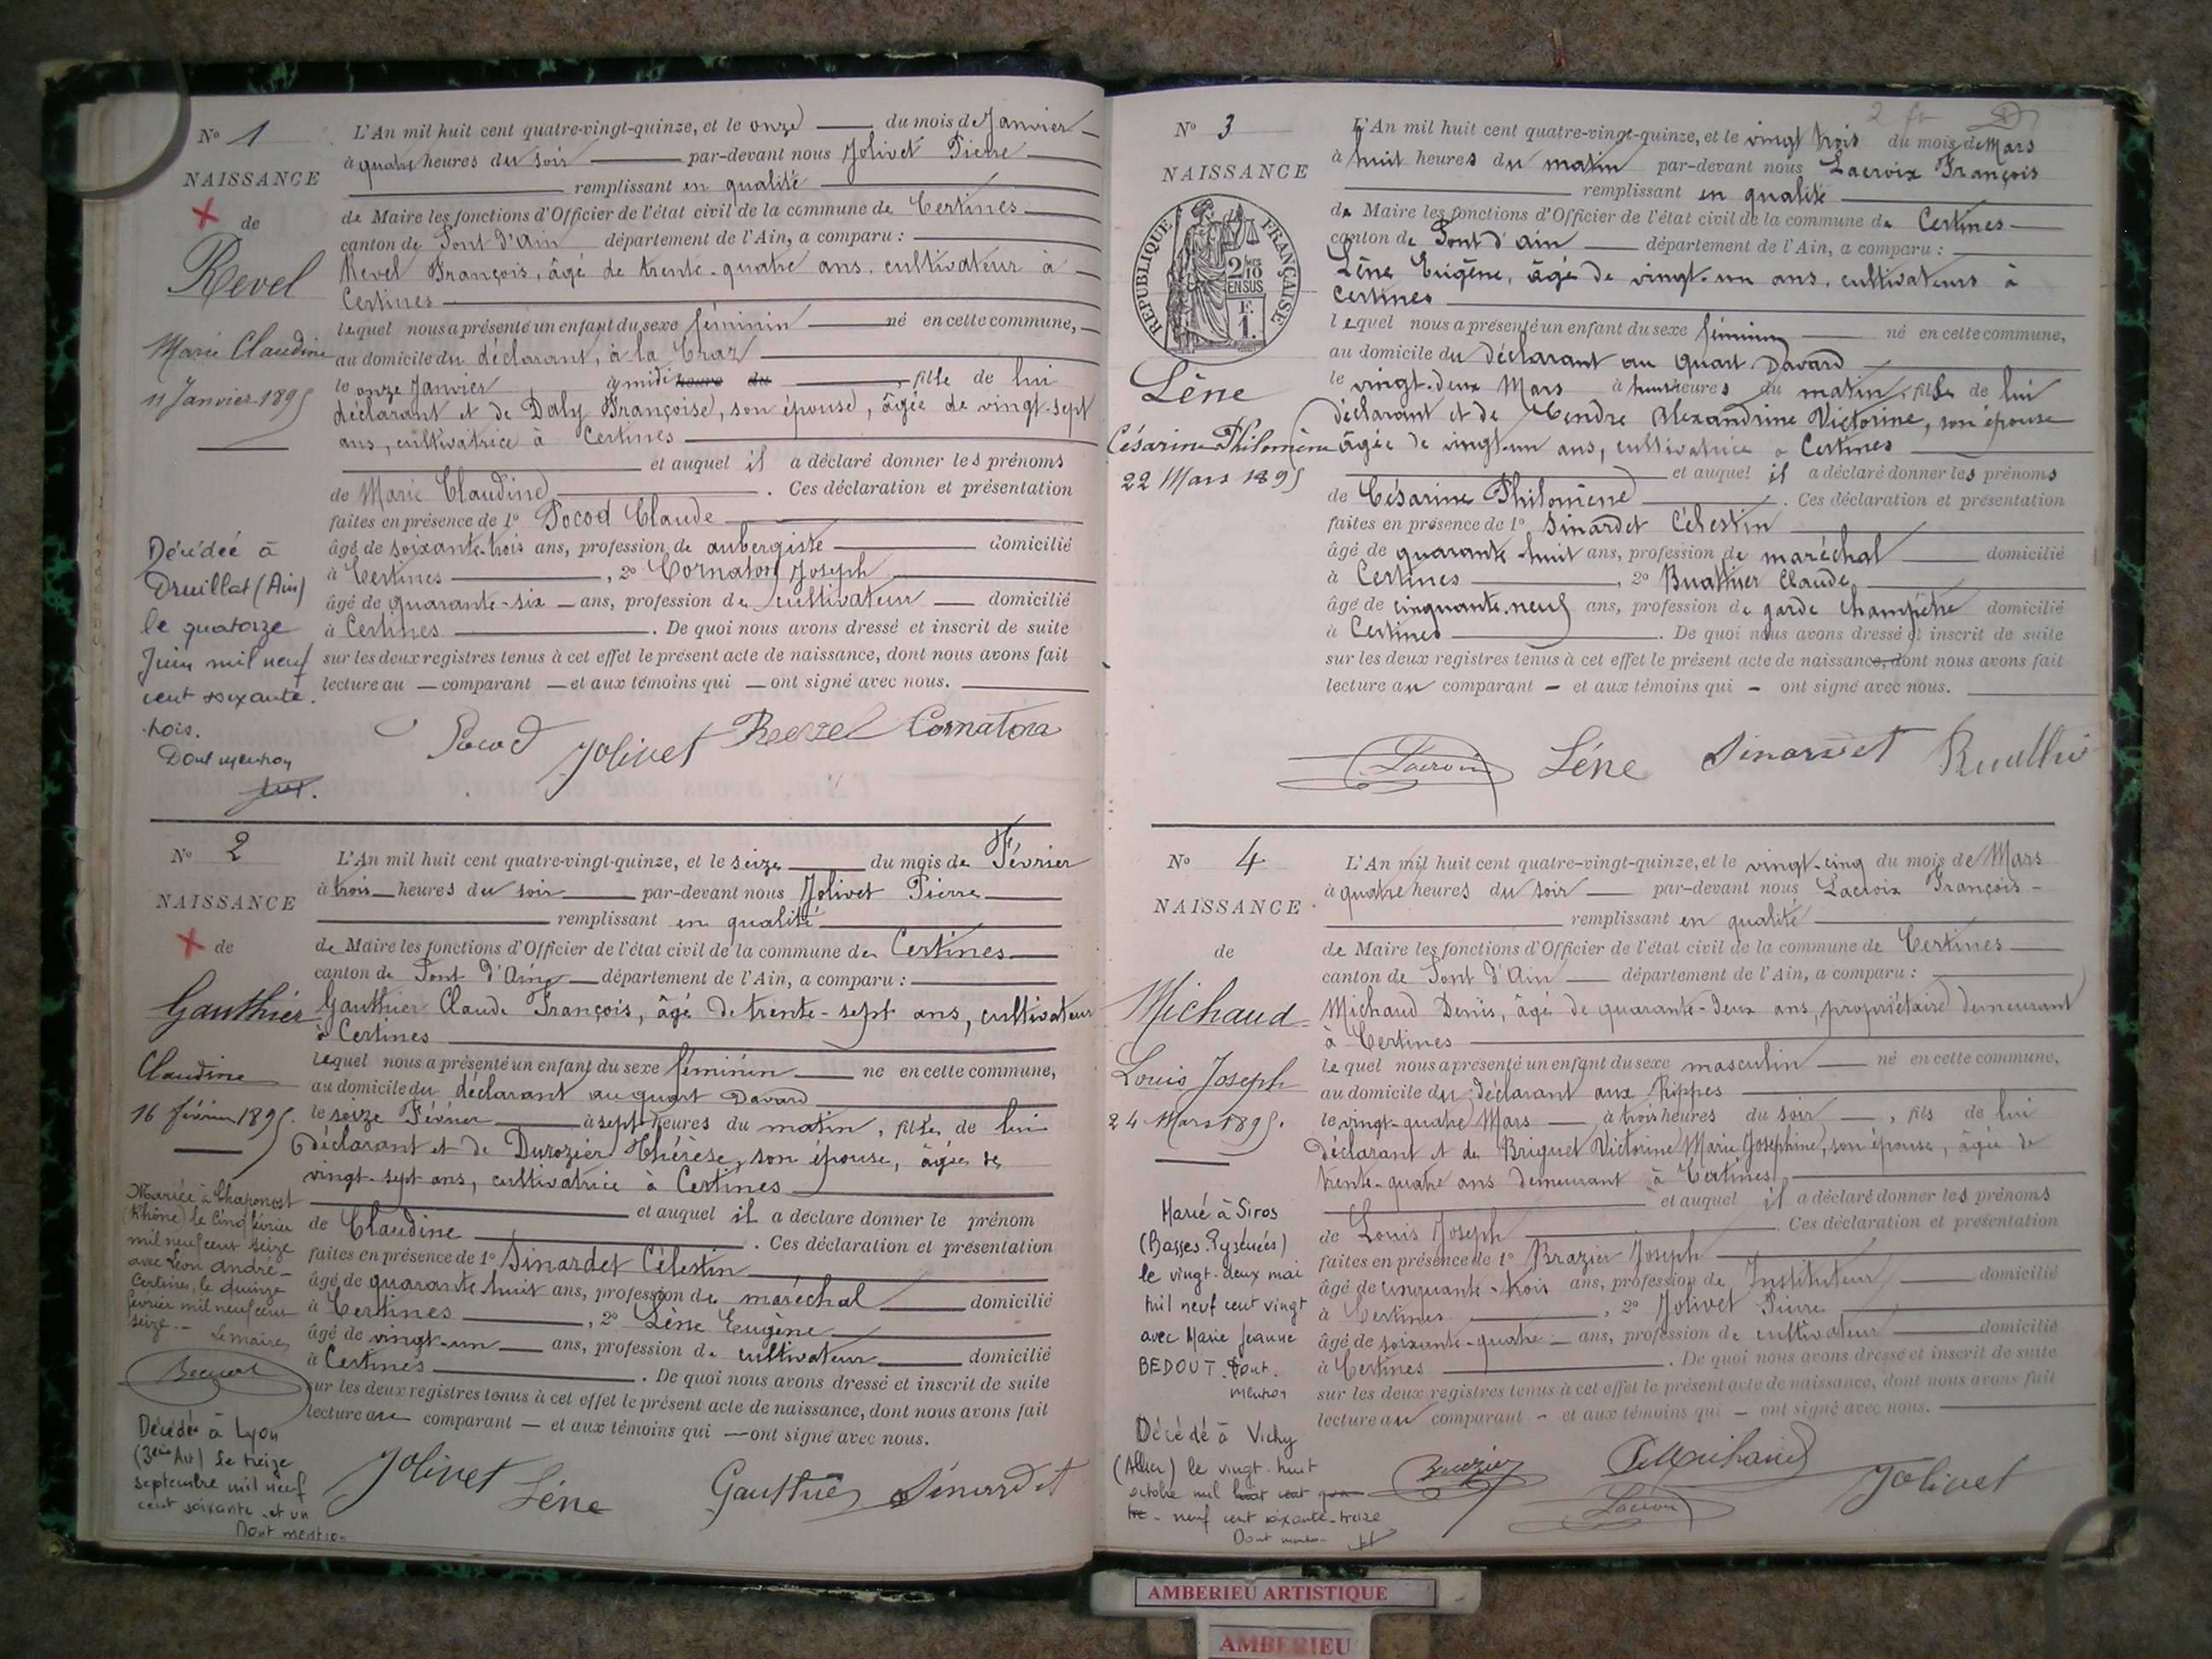 N° 1
NAISSANCE
de
Revel
Marie Claudine
11 Janvier 1895
L'An mil huit cent quatre-vingt-quinze, et le onze du mois de Janvier
à quatre heures du soir par-devant nous Jolivet Pierre
remplissant en qualité
de Maire les fonctions d'Officier de l'état civil de la commune de Certines
canton de Pont d'Ain département de l'Ain, a comparu :
Revel François, âgé de trente-quatre ans, cultivateur à
Certines
lequel nous a présenté un enfant du sexe féminin né en cette commune,
au domicile du déclarant, à la Craz
le onze Janvier à midi heure du , fille de lui
déclarant et de Daly Françoise, son épouse, âgée de vingt-sept
ans, cultivatrice à Certines
et auquel il a déclaré donner les prénoms
de Marie Claudine . Ces déclaration et présentation
faites en présence de 1° Pocod Claude
âgé de soixante-trois ans, profession de aubergiste domicilié
à Certines , 2° Cornaton Joseph
âgé de quarante-six ans, profession de cultivateur domicilié
à Certines . De quoi nous avons dressé et inscrit de suite
sur les deux registres tenus à cet effet le présent acte de naissance, dont nous avons fait
lecture au comparant et aux témoins qui ont signé avec nous.
Pocod Jolivet Revel Cornaton
Décédée à
Druillat (Ain)
le quatorze
Juin mil neuf
cent soixante.
trois.
Dont mention
N° 2
NAISSANCE
de
Gauthier
Claudine
16 février 1895.
L'An mil huit cent quatre-vingt-quinze, et le seize du mois de Février
à trois heures du soir par-devant nous Jolivet Pierre
remplissant en qualité
de Maire les fonctions d'Officier de l'état civil de la commune de Certines
canton de Pont d'Ain département de l'Ain, a comparu :
Gauthier Claude François, âgé de trente-sept ans, cultivateur
à Certines
lequel nous a présenté un enfant du sexe féminin né en cette commune,
au domicile du déclarant au quart Davard
le seize Février à sept heures du matin, fille de lui
déclarant et de Durozier Thérèse, son épouse, âgée de
vingt-sept ans, cultivatrice à Certines
et auquel il a déclaré donner le prénom
de Claudine . Ces déclaration et présentation
faites en présence de 1° Sinardet Célestin
âgé de quarante huit ans, profession de maréchal domicilié
à Certines , 2° Lène Eugène
âgé de vingt-un ans, profession de cultivateur domicilié
à Certines . De quoi nous avons dressé et inscrit de suite
sur les deux registres tenus à cet effet le présent acte de naissance, dont nous avons fait
lecture au comparant et aux témoins qui ont signé avec nous.
Jolivet Lène Gauthier Sinardet
Mariée à Chaponost
(Rhône) le cinq février
mil neuf cent seize
avec Léon André -
Certines, le quinze
février mil neuf cent
seize. - Le maire,
Décédée à Lyon
(3ème Arr) le treize
septembre mil neuf
cent soixante et un
Dont mention
N° 3
NAISSANCE
REPUBLIQUE FRANÇAISE
2/10
EN SUS
F.
1.
Lène
Césarine Philomène
22 Mars 1895
L'An mil huit cent quatre-vingt-quinze, et le vingt trois du mois de Mars
à huit heures du matin par-devant nous Lacroix François
remplissant en qualité
de Maire les fonctions d'Officier de l'état civil de la commune de Certines
canton de Pont d'ain département de l'Ain, a comparu :
Lène Eugène, âgé de vingt-un ans, cultivateurs à
Certines
lequel nous a présenté un enfant du sexe féminin né en cette commune,
au domicile du déclarant au quart Davard
le vingt-deux Mars à heures du matin, fille de lui
déclarant et de Tendre Alexandrine Victorine, son épouse
âgée de vingt-un ans, cultivatrice à Certines
et auquel il a déclaré donner les prénoms
de Césarine Philomène . Ces déclaration et présentation
faites en présence de 1° Sinardet Célestin
âgé de quarante-huit ans, profession de maréchal domicilié
à Certines , 2° Buathier Claude
âgé de cinquante-neuf ans, profession de garde champêtre domicilié
à Certines . De quoi nous avons dressé et inscrit de suite
sur les deux registres tenus à cet effet le présent acte de naissance, dont nous avons fait
lecture au comparant - et aux témoins qui - ont signé avec nous.
Lacroix Lène Sinardet Buathier
N° 4
NAISSANCE
de
Michaud
Louis Joseph
24 Mars 1895.
L'An mil huit cent quatre-vingt-quinze, et le vingt-cinq du mois de Mars
à quatre heures du soir par-devant nous Lacroix François -
remplissant en qualité
de Maire les fonctions d'Officier de l'état civil de la commune de Certines
canton de Pont d'Ain département de l'Ain, a comparu :
Michaud Denis, âgé de quarante-deux ans, propriétaire demeurant
à Certines
lequel nous a présenté un enfant du sexe masculin né en cette commune,
au domicile du déclarant aux Rippes
le vingt-quatre Mars à trois heures du soir , fils de lui
déclarant et de Briguet Victorine Marie Josephine, son épouse, âgée de
trente-quatre ans demeurant à Certines
et auquel il a déclaré donner les prénoms
de Louis Joseph . Ces déclaration et présentation
faites en présence de 1° Brazier Joseph
âgé de cinquante-trois ans, profession de Instituteur domicilié
à Certines , 2° Jolivet Pierre
âgé de soixante-quatre ans, profession de cultivateur domicilié
à Certines . De quoi nous avons dressé et inscrit de suite
sur les deux registres tenus à cet effet le présent acte de naissance, dont nous avons fait
lecture au comparant - et aux témoins qui - ont signé avec nous.
Brazier D Michaud Jolivet
Lacroix
Marié à Siros
(Basses-Pyrénées)
le vingt-deux mai
mil neuf cent vingt
avec Marie Jeanne
BEDOUT. Dont
mention
Décédé à Vichy
(Allier) le vingt-huit
octobre mil
neuf cent soixante-treize
Dont mention
AMBERIEU ARTISTIQUE
AMBERIEU